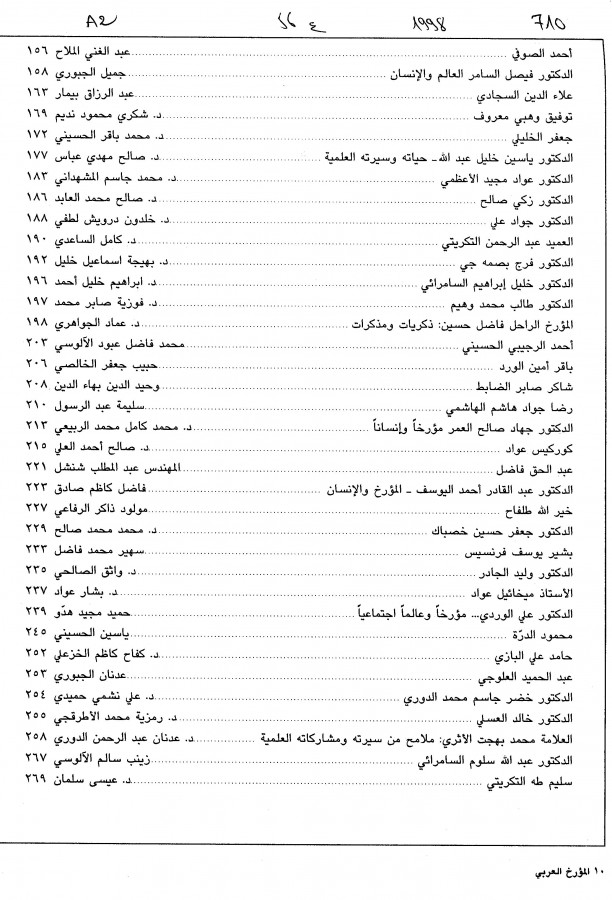 710 1998 ع 56 A2
أحمد الصوفي ... عبد الغني الملاح ١٥٦
الدكتور فيصل السامر العالم والإنسان ... جميل الجبوري ١٥٨
علاء الدين السجادي ... عبد الرزاق بيمار ١٦٣
توفيق وهبي معروف ... د. شكري محمود نديم ١٦٩
جعفر الخليلي ... د. محمد باقر الحسيني ١٧٢
الدكتور ياسين خليل عبد الله ـ حياته وسيرته العلمية ... د. صالح مهدي عباس ١٧٧
الدكتور عواد مجيد الأعظمي ... د. محمد جاسم المشهداني ١٨٣
الدكتور زكي صالح ... د. صالح محمد العابد ١٨٦
الدكتور جواد علي ... د. خلدون درويش لطفي ١٨٨
العميد عبد الرحمن التكريتي ... د. كامل الساعدي ١٩٠
الدكتور فرج بصمه جي ... د. بهيجة اسماعيل خليل ١٩٢
الدكتور خليل إبراهيم السامرائي ... د. ابراهيم خليل أحمد ١٩٦
الدكتور طالب محمد وهيم ... د. فوزية صابر محمد ١٩٧
المؤرخ الراحل فاضل حسين: ذكريات ومذكرات ... د. عماد الجواهري ١٩٨
أحمد الرجيبي الحسيني ... محمد فاضل عبود الآلوسي ٢٠٣
باقر أمين الورد ... حبيب جعفر الخالصي ٢٠٦
شاكر صابر الضابط ... وحيد الدين بهاء الدين ٢٠٨
رضا جواد هاشم الهاشمي ... سليمة عبد الرسول ٢١٠
الدكتور جهاد صالح العمر مؤرخاً وإنساناً ... د. محمد كامل محمد الربيعي ٢١٣
كوركيس عواد ... د. صالح أحمد العلي ٢١٥
عبد الحق فاضل ... المهندس عبد المطلب شنشل ٢٢١
الدكتور عبد القادر أحمد اليوسف ـ المؤرخ والإنسان ... فاضل كاظم صادق ٢٢٣
خير الله طلفاح ... مولود ذاكر الرفاعي ٢٢٧
الدكتور جعفر حسين خصباك ... د. محمد محمد صالح ٢٢٩
بشير يوسف فرنسيس ... سهير محمد فاضل ٢٣٣
الدكتور وليد الجادر ... د. واثق الصالحي ٢٣٥
الأستاذ ميخائيل عواد ... د. بشار عواد ٢٣٧
الدكتور علي الوردي... مؤرخاً وعالماً اجتماعياً ... حميد مجيد هدّو ٢٣٩
محمود الدرّة ... ياسين الحسيني ٢٤٥
حامد علي البازي ... د. كفاح كاظم الخزعلي ٢٥٢
عبد الحميد العلوجي ... عدنان الجبوري ٢٥٣
الدكتور خضر جاسم محمد الدوري ... د. علي نشمي حميدي ٢٥٤
الدكتور خالد العسلي ... د. رمزية محمد الأطرقجي ٢٥٥
العلامة محمد بهجت الاثري: ملامح من سيرته ومشاركاته العلمية ... د. عدنان عبد الرحمن الدوري ٢٥٨
الدكتور عبد الله سلوم السامرائي ... زينب سالم الآلوسي ٢٦٧
سليم طه التكريتي ... د. عيسى سلمان ٢٦٩
١٠ المؤرخ العربي